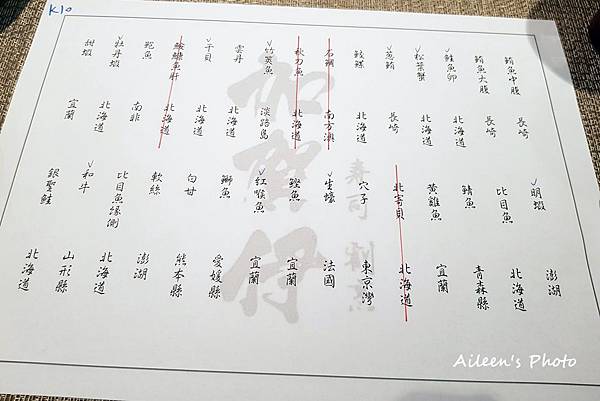 K10
鮪魚中腹 長崎
鮪魚大腹 長崎
鮭魚卵 北海道
松葉蟹 北海道
葱鮪 長崎
鮫鰈 北海道
石鯛 南方澳
秋刀魚 北海道
竹莢魚 淡路島
雲丹 北海道
干貝 北海道
鮟鱇魚肝 北海道
鮑魚 南非
牡丹蝦 北海道
甜蝦 宜蘭
明蝦 澎湖
比目魚 北海道
鯖魚 青森縣
黃雞魚 宜蘭
北寄貝 北海道
穴子 東京灣
生蠔 法國
鰹魚 宜蘭
紅喉魚 宜蘭
鰤魚 愛媛縣
白甘 熊本縣
軟絲 澎湖
比目魚緣側 北海道
和牛 山形縣
銀聖鮭 北海道
加賀仔
壽司
Aileen's Photo